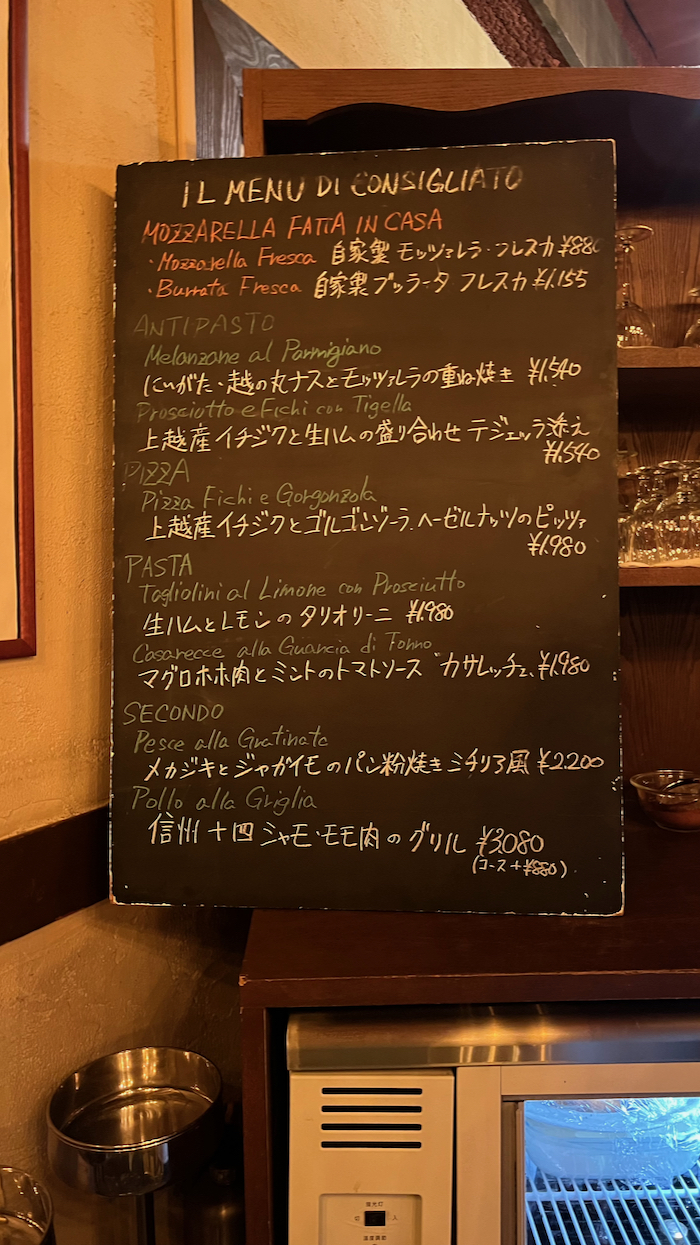 IL MENU DI CONSIGLIATO
MOZZARELLA FATTA IN CASA
・Mozzarella Fresca 自家製 モッツァレラ・フレスカ ¥880
・Burrata Fresca 自家製 ブッラータ フレスカ ¥1.155
ANTIPASTO
Melanzane al Parmigiano
にいがた・越の丸ナスとモッツァレラの重ね焼き ¥1.540
Prosciotto e Fichi con Tigella
上越産イチジクと生ハムの盛り合わせ テジェッラ添え
¥1.540
PIZZA
Pizza Fichi e Gorgonzola
上越産イチジクとゴルゴンゾーラ、ヘーゼルナッツのピッツァ
¥1.980
PASTA
Tagliolini al Limone con Prosciutto
生ハムとレモンのタリオリーニ ¥1.980
Casarecce alla Guancia di Tonno
マグロホホ肉とミントのトマトソース "カサレッチェ" ¥1.980
SECONDO
Pesce alla Gratinata
メカジキとジャガイモのパン粉焼き ミチリア風 ¥2.200
Pollo alla Griglia
信州十四シャモ・モモ肉のグリル ¥3.080
(コース+¥880)
切 入